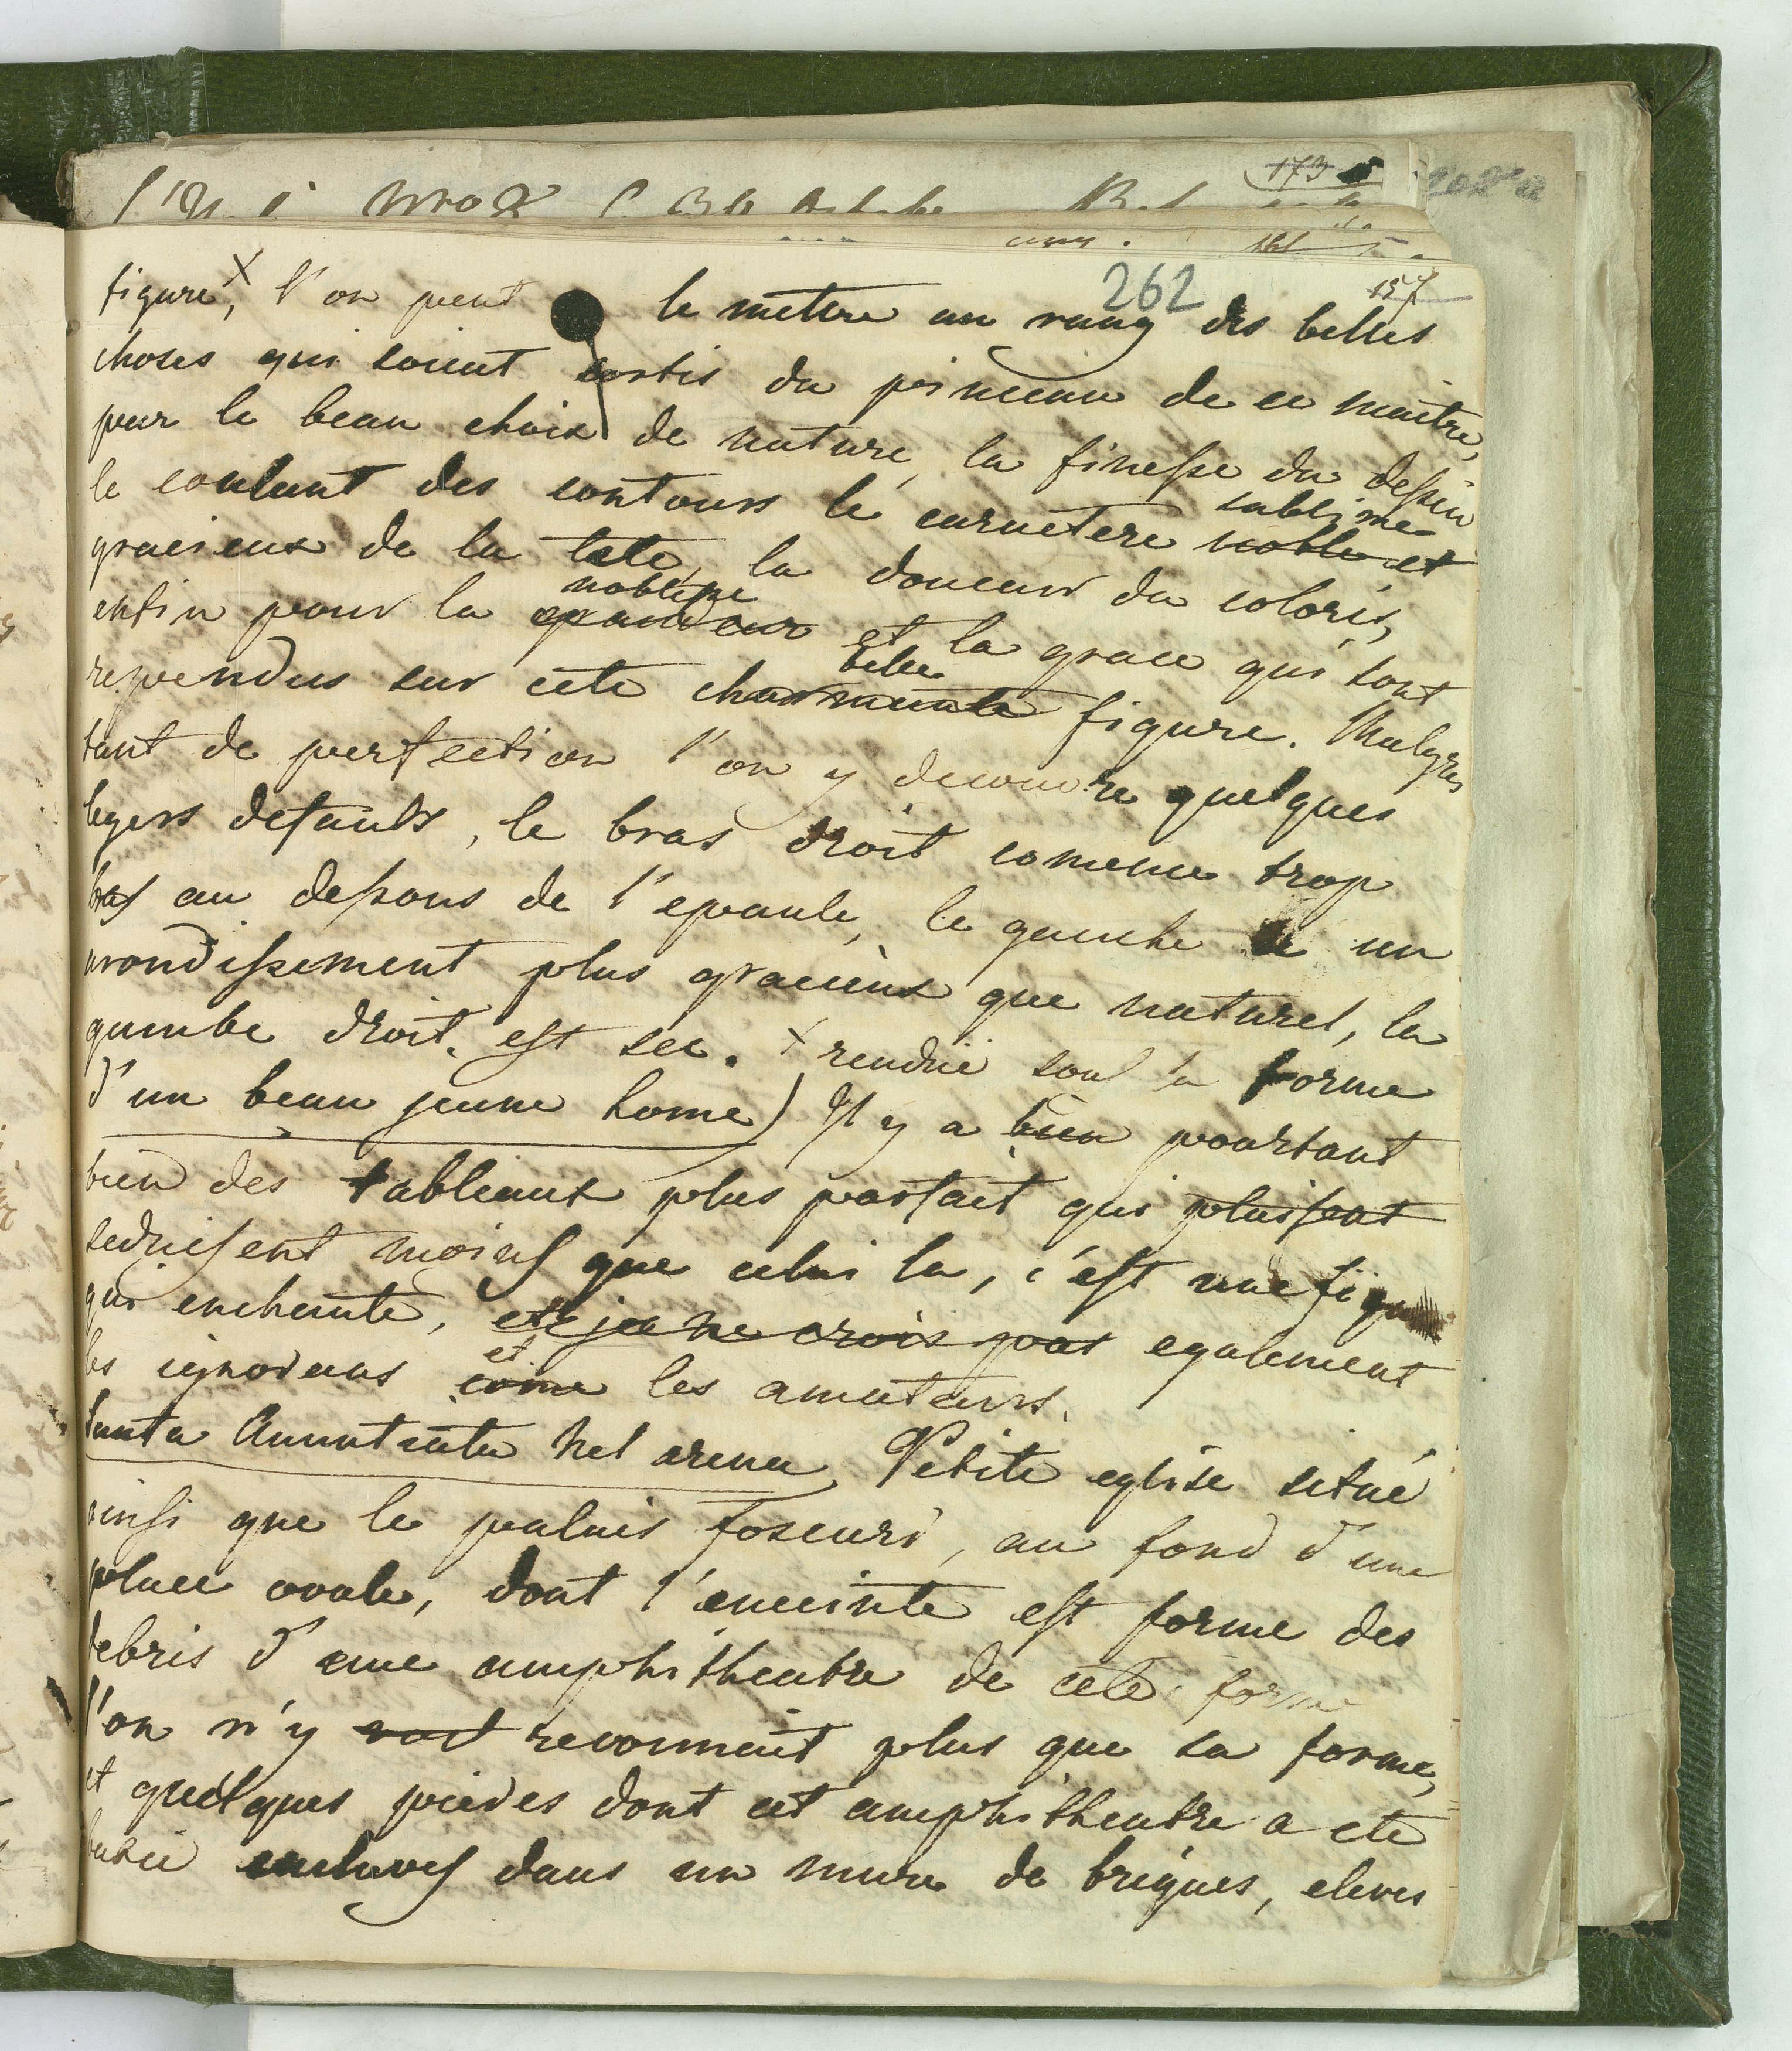 262 157
figure,x l'on peut le mettre au rang des belles
choses qui soient sortis du pinceau de ce maitre,
pour le beau choix de nature, la finesse du dessein
le coulant des contours le caractere noble et sublime
gracieux de la tete, la douceur du coloris,
enfin pour la grandeur noblesse et la grace qui sont
rependus sur cete charmente belle figure. Malgres
tant de perfection l'on y decouvre quelques
legers defauts, le bras droit comence trop
bas au dessous de l'epaule, le gauche a un
arondissement plus gracieux que naturel, la
gambe droit. est sec. x rendue sous la forme
d'un beau jeune home) Il y a bien pourtant
bien des tableaux plus parfait qui plaisent
seduisent moins que celui la, c'est une figure
qui enchante, et je ne crois pas egalement
les ignorans come et les amateurs.
Santa Annuntiata nel arena Petite eglise situé
ainsi que le palais foscari, au fond d'une
place ovale, dont l'enceinte est forme des
debris d'une amphitheatre de cete forme
l'on n'y voit reconnait plus que sa forme,
et quelques pierres dont cet amphitheatre a ete
batie enclaves dans un mure de briques, eleves